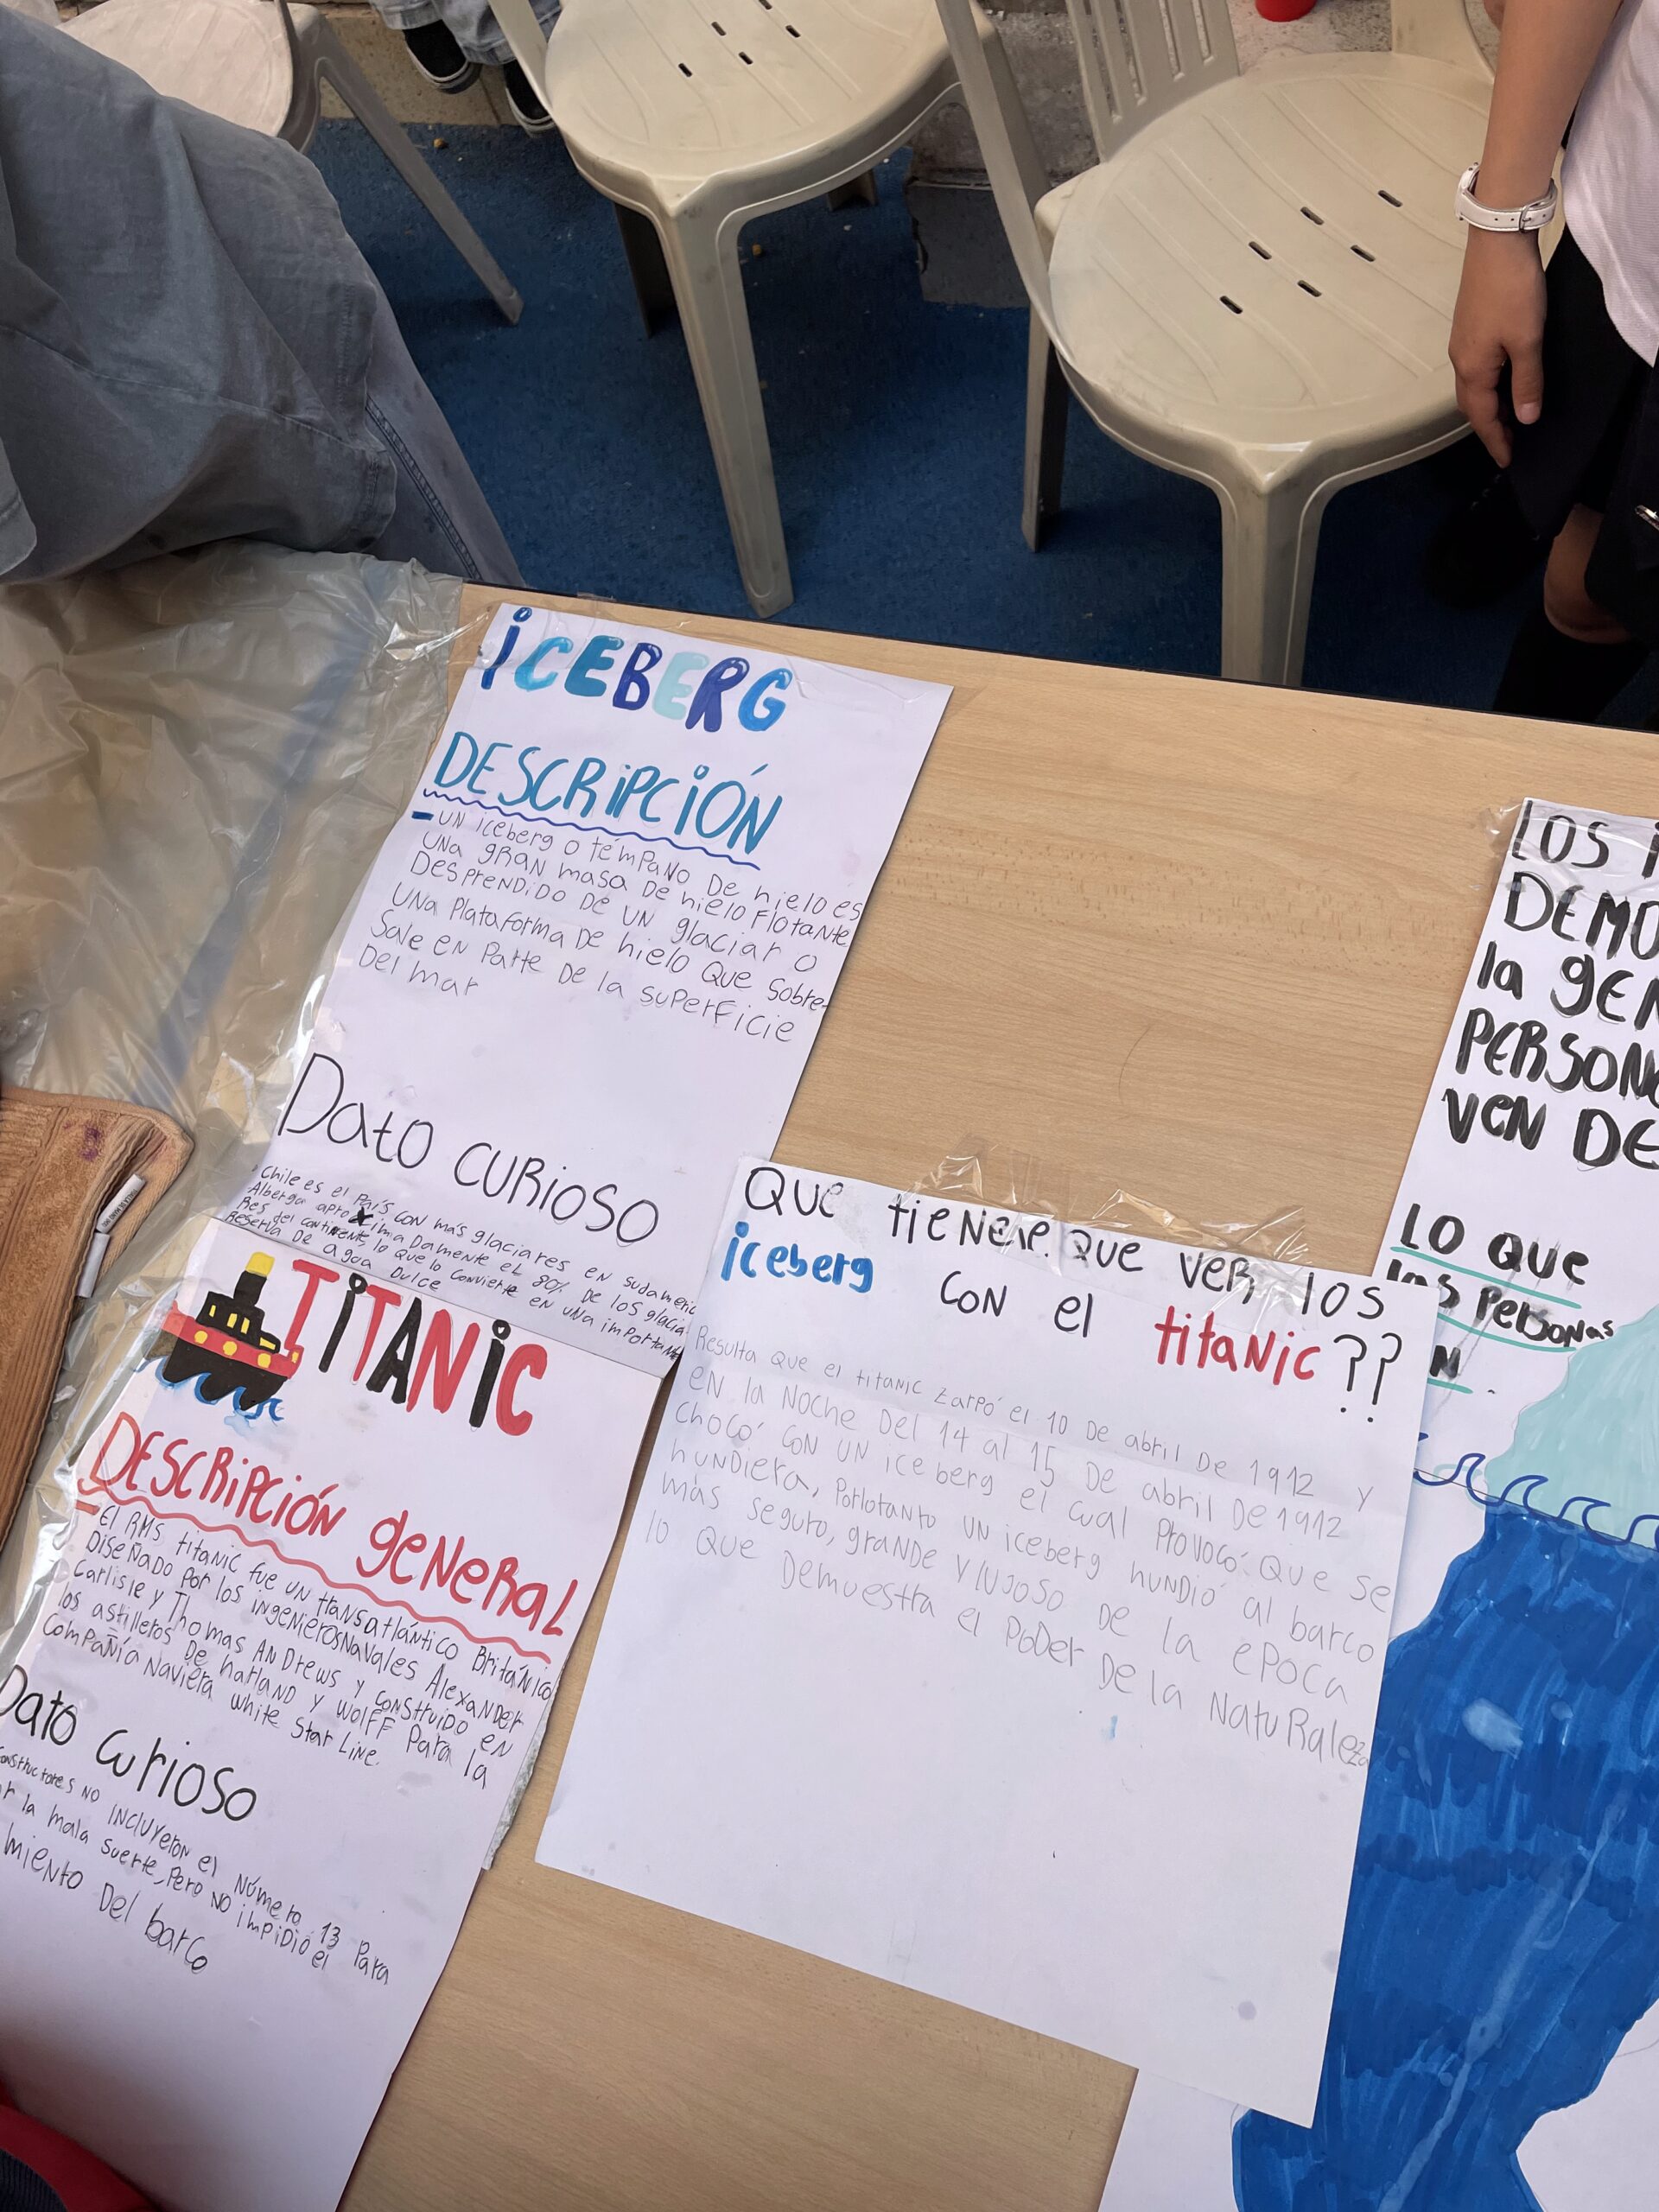 iCEBERG
DESCRiPCiÓN
-UN iceberg o témpaNo De hielo es
UNa gRaN masa De hielo Flotante
DesprenDiDo De UN glaciar o
UNa Plataforma De hielo Que Sobre-
Sale eN Parte De la superficie
Del mar
Dato CURiOSO
Chile es el País con más glaciares en sudameric
Alberga aproximaDamente el 80% De los glacia
Res del continente, lo que lo convierte en una importante
Reserva De agua Dulce
TiTANiC
DESCRiPCiÓN geNeRaL
-El RMS titanic fue un transatlántico Británico
Diseñado por los ingenieros Navales Alexander
Carlisle y Thomas Andrews y construido en
los astilleros De harland y wolff Para la
Compañía naviera white Star Line.
Dato Curioso
constructores NO incluyeron el Número 13 Para
la mala suerte, Pero NO impidió el
miento Del barco
Que tieNeN Que veR los
iceberg coN el titaNic??
Resulta que el titanic zarpó el 10 De abril De 1912 y
eN la Noche Del 14 al 15 De abril De 1912
chocó con un iceberg el cual Provocó que se
hundiera, Porlotanto un iceberg hundió al barco
más seguro, grande y lujoso De la ePoca
lo Que Demuestra el PoDer De la NatuRaleza
LOS
DEMO
la geN
PERSONA
VeN DE
LO QUe
las PeRsoNas
N